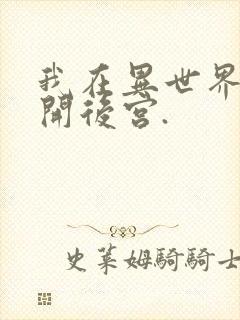 我在異世界
開後宮.
史萊姆騎騎士